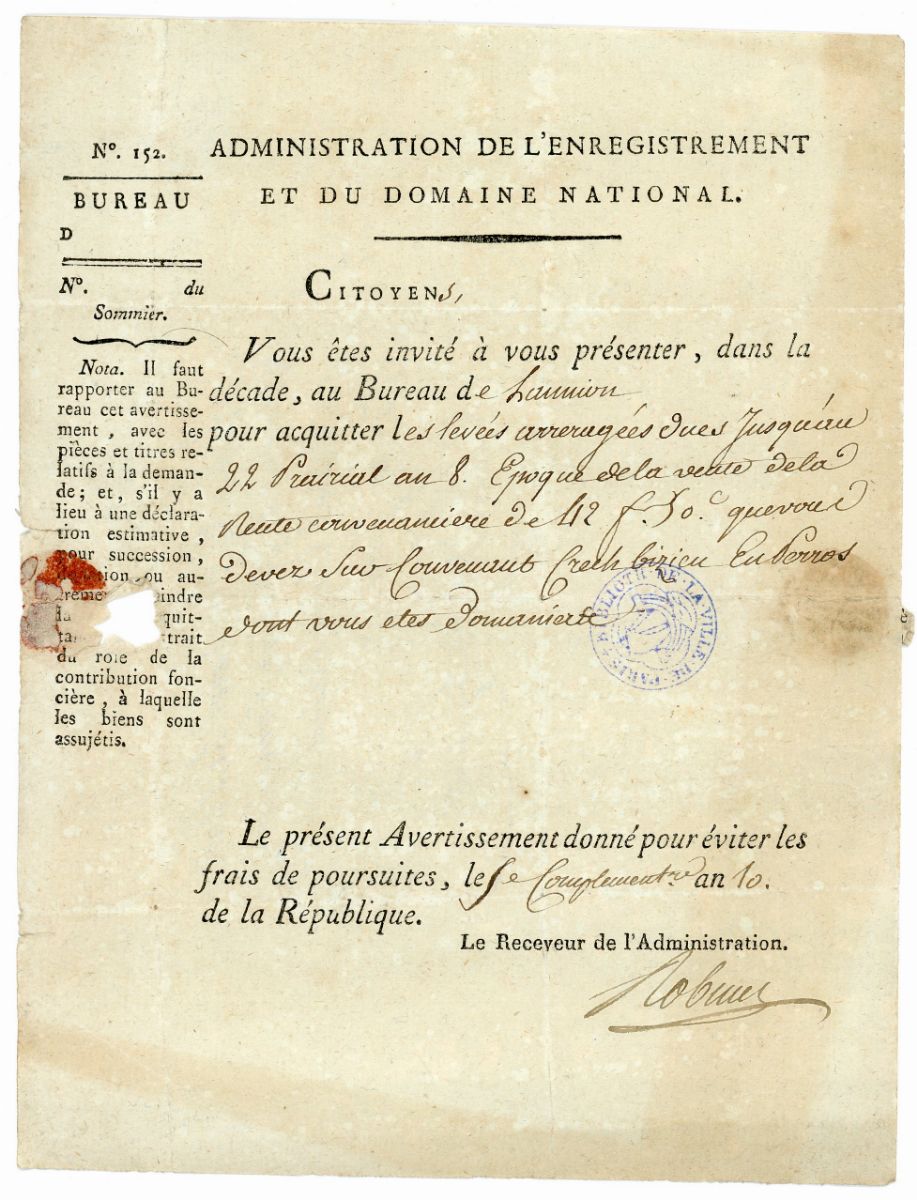 N°. 152.
BUREAU
D
N°. du
Sommier.
Nota. Il faut
rapporter au Bu-
reau cet avertisse-
ment, avec les
pièces et titres re-
latifs à la deman-
de; et, s'il y a
lieu à une déclara-
tion estimative,
pour succession,
ou au-
indre
la quit-
trait
du role de la
contribution fon-
cière, à laquelle
les biens sont
assujétis.
ADMINISTRATION DE L'ENREGISTREMENT
ET DU DOMAINE NATIONAL.
CITOYENs,
Vous êtes invité à vous présenter, dans la
décade, au Bureau de Lannion
pour acquitter les levées arreragées dues Jusqu'au
22 Prairial an 8. Epoque de la vente de la
Rente convenanciere de 42 f. 50c. que vous
devez Sur Convenant Crech bizien En Perros
dont vous etes Domanier
BIBLIOTH. DE LA VILLE DE PARIS
Le présent Avertissement donné pour éviter les
frais de poursuites, le 5e Complementre an 10.
de la République.
Le Receveur de l'Administration.